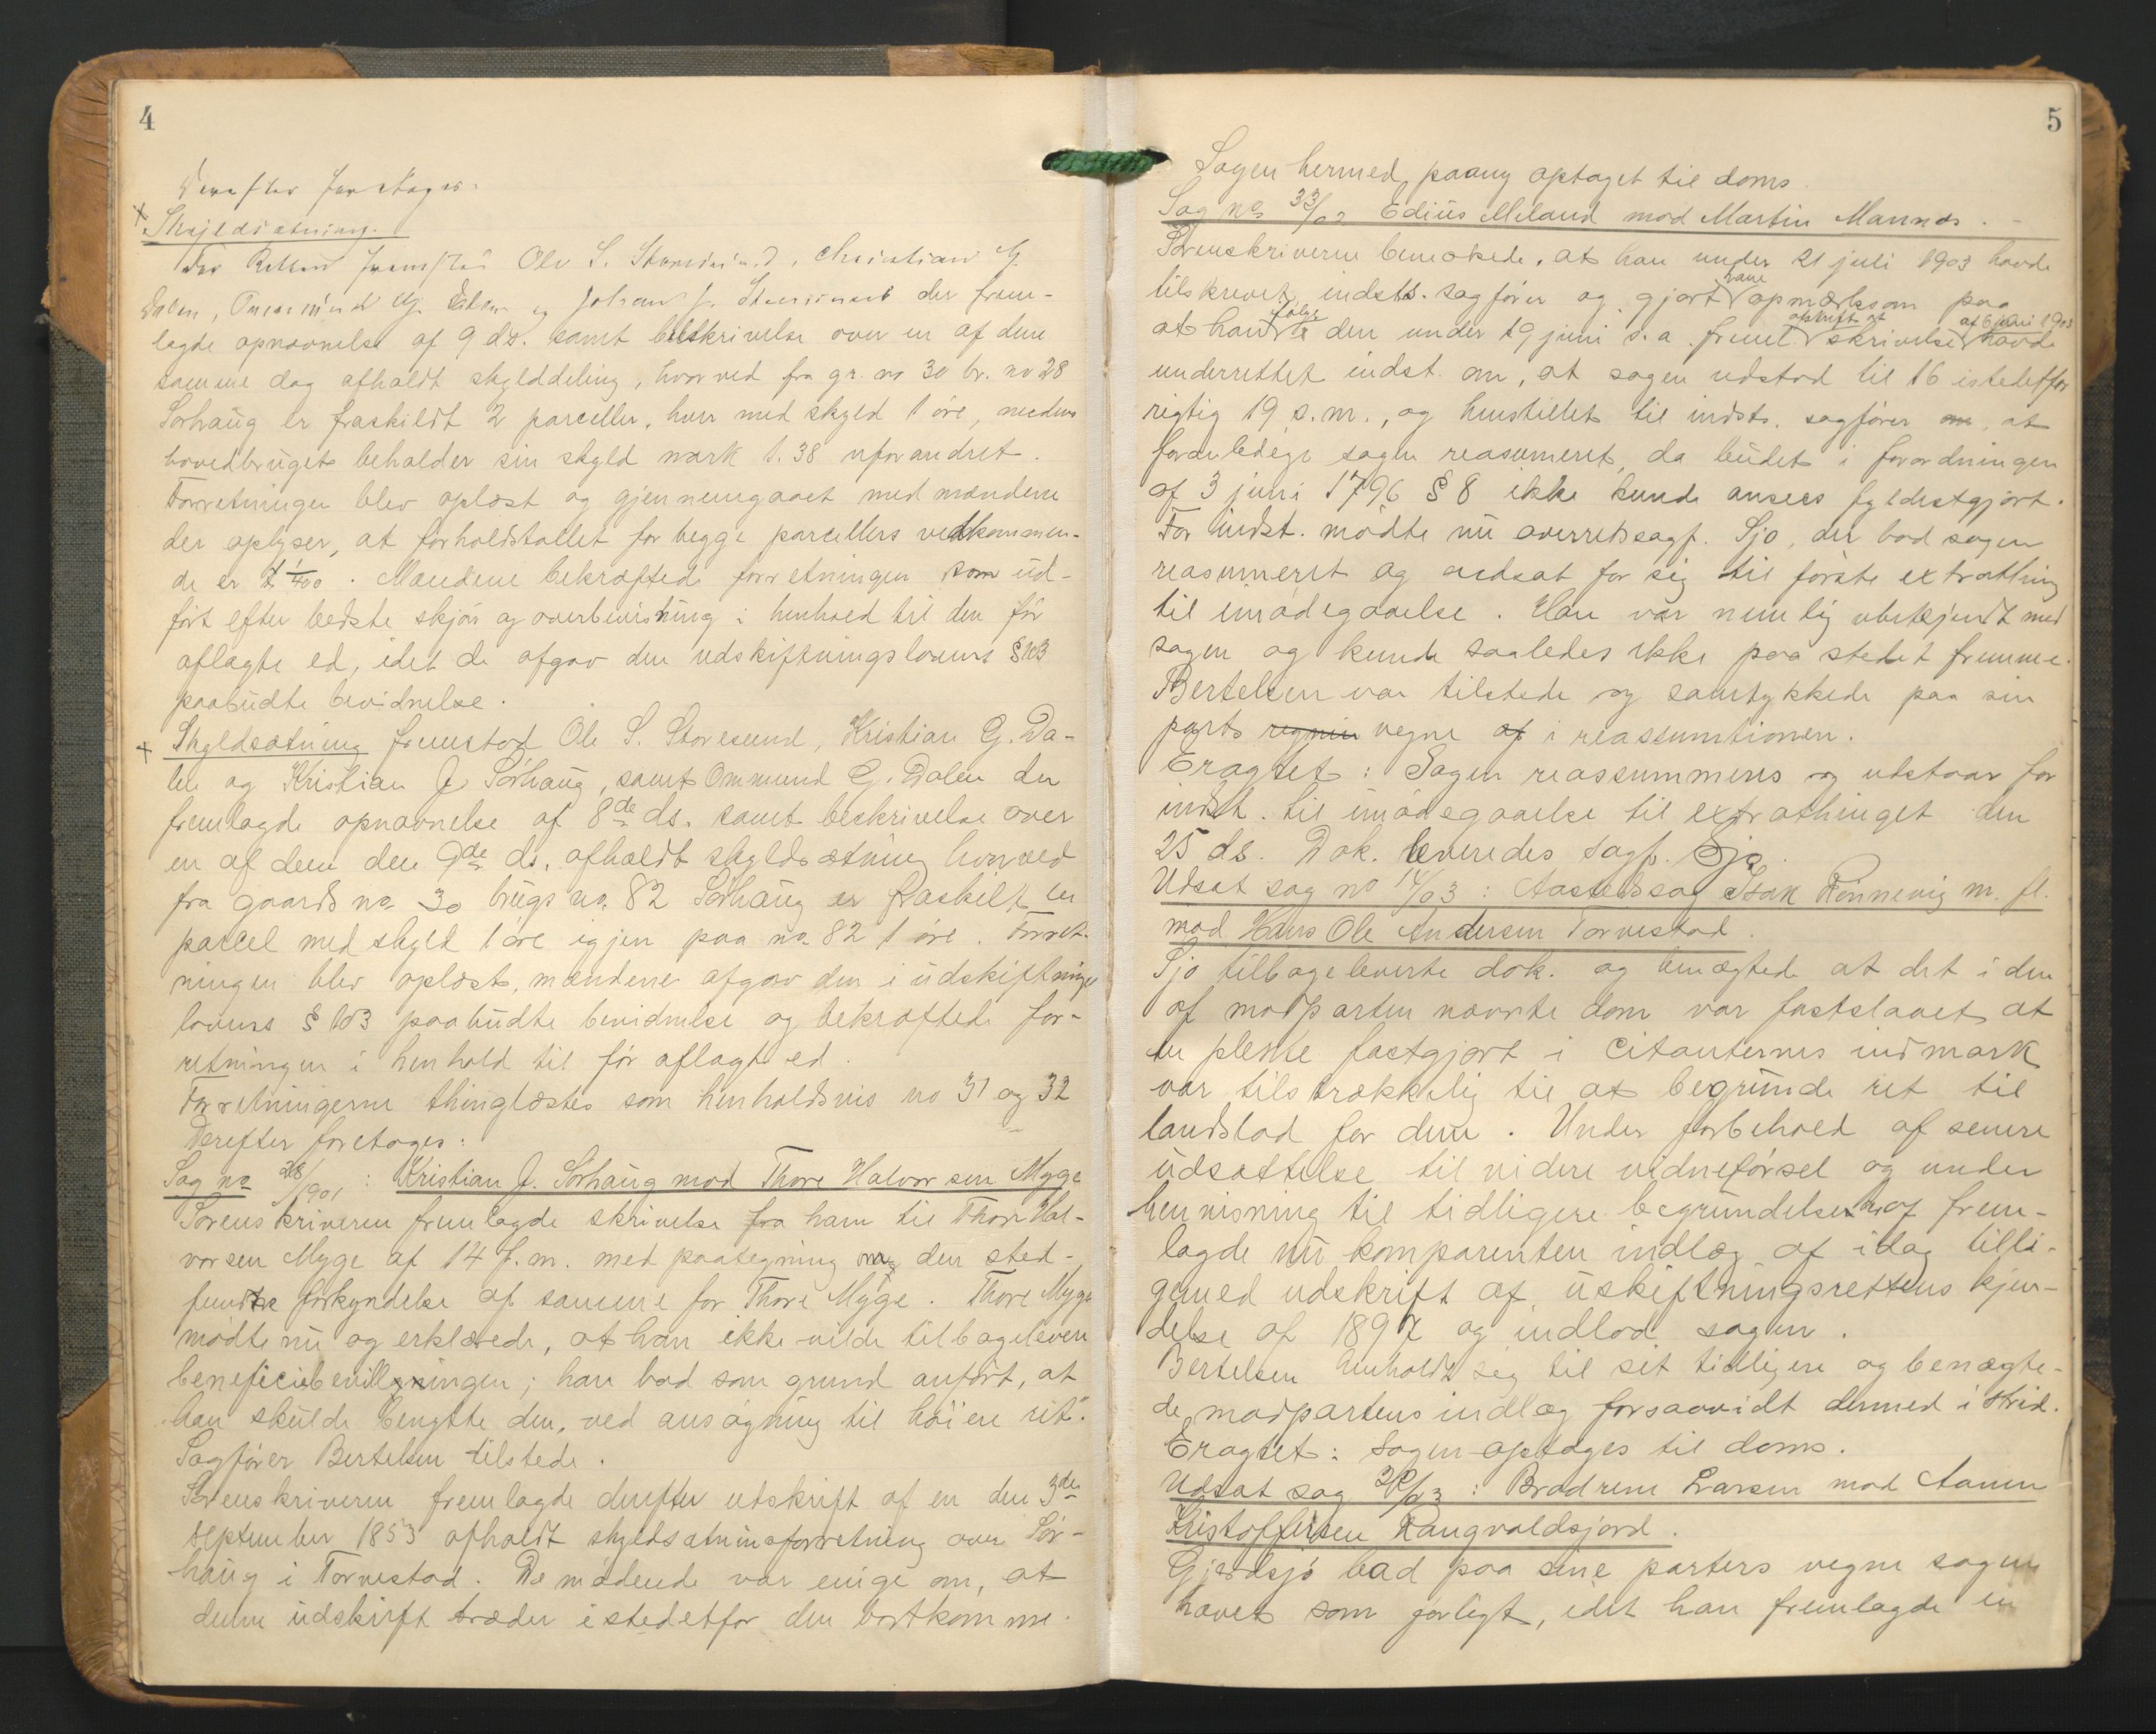 4
Derefter foretages:
× Skyldsætning.
For Retten fremstod Ole S. Storesund, Christian G.
Dalen, Ommund G. Dalen og Johan J. Storesund der frem-
lagde opnævnelse af 9 ds. samt beskrivelse over en af dem
samme dag afholdt skylddeling, hvorved fra gr. no 30 br. no 28
Sørhaug er fraskildt 2 parceller, hver med skyld 1 øre, medens
hovedbruget beholder sin skyld mark 1.38 uforandret.
Forretningen blev oplæst og gjennemgaaet med mændene
der oplyser, at forholdstallet for begge parcellers vedkommen-
de er 1/400. Mændene bekræftede forretningen som ud-
ført efter bedste skjøn og overbevisning i henhold til den før
aflagte ed, idet de afgav den udskiftningslovens § 103
paabudte bevidnelse.
× Skyldsætning fremstod Ole S. Storesund, Kristian G. Da-
len og Kristian J. Sørhaug, samt Ommund G. Dalen der
fremlagde opnævnelse af 8de ds. samt beskrivelse over
en af dem den 9de ds. afholdt skyldsætning hvorved
fra gaards no 30 brugs no. 82 Sørhaug er fraskilt en
parcel med skyld 1 øre igjen paa no 82 1 øre. Forret-
ningen blev oplæst, mændene afgav den i udskiftnings
lovens § 103 paabudte bevidnelse og bekræftede for-
retningen i henhold til før aflagt ed.
Forretningerne thinglæstes som henholdsvis no 31 og 32
Derefter foretages:
Sag no 28/1901: Kristian J. Sørhaug mod Thore Halvorsen Myge
Sorenskriveren fremlagde skrivelse fra ham til Thore Hal-
vorsen Myge af 14 f.m. med paategning om den sted-
fundne forkyndelse af samme for Thore Myge. Thore Myge
mødte nu og erklærede, at han ikke vilde tilbagelevere
beneficiebevillingen; han bad som grund anført, at
han skulde benytte den, ved ansøgning til høiere ret".
Sagfører Bertelsen tilstede.
Sorenskriveren fremlagde derefter utskrift af en den 3die
september 1853 afholdt skyldsætningsforretning over Sør-
haug i Torvestad. De mødende var enige om, at
denne udskrift træder istedetfor den bortkomne.
5
Sagen hermed paany optaget til doms.
Sag no 33/02 Edius Meland mod Martin Mannes.
Sorenskriveren bemerkede, at han under 21 juli 1903 havde
tilskrevet indsts. sagfører og gjort ham opmærksom paa
at han ifølge den under 19 juni s.a. freml. afskrift af skrivelse af 6 juni 1903 havde
underrettet indst. om, at sagen udstod til 16 istedetfor
rigtig 19 s.m., og henstillet til indsts. sagfører om, at
foranledige sagen reasumeret, da budet i forordningen
af 3 juni 1796 § 8 ikke kunde ansees fyldestgjort.
For indst. mødte nu overretssagf. Sjo, der bad sagen
reasumeret og udsat for sig til første extrathing
til imødegaaelse. Han var nemlig ubekjendt med
sagen og kunde saaledes ikke paa stedet fremme.
Bertelsen var tilstede og samtykkede paa sin
parts regnin vegne af i reassumtionen.
Eragtet: Sagen reassummeres og udstaar for
indst. til imødegaaelse til extrathinget den
25 ds. Dok. leveredes sagf. Sjo.
Udsat sag no 14/03: Aastedssag Isak Rønnevig m. fl.
mod Hans Ole Andersen Torvestad.
Sjo tilbageleverte dok. og benægtede at det i den
af modparten nævnte dom var fastslaaet, at
en plente fastgjort i Citanternes indmark
var tilstrækkelig til at begrunde ret til
landslod for dem. Under forbehold af senere
udsættelse til videre vidneførsel og under
henvisning til tidligere begrundelse heraf frem-
lagde nu komparenten indlæg af idag tilli-
gemed udskrift af uskiftningsrettens kjen-
delse af 1897 og indlod sagen.
Bertelsen henholdt sig til sit tidligere og benægte-
de modpartens indlæg forsaavidt dermed i strid.
Eragtet: Sagen optages til doms.
Udsat sag 20/03: Brødrene Larsen mod Aanen
Kristoffersen Rangvaldsjord.
Gjerdsjø bad paa sine parters vegne sagen
hævet som forligt, idet han fremlagde en